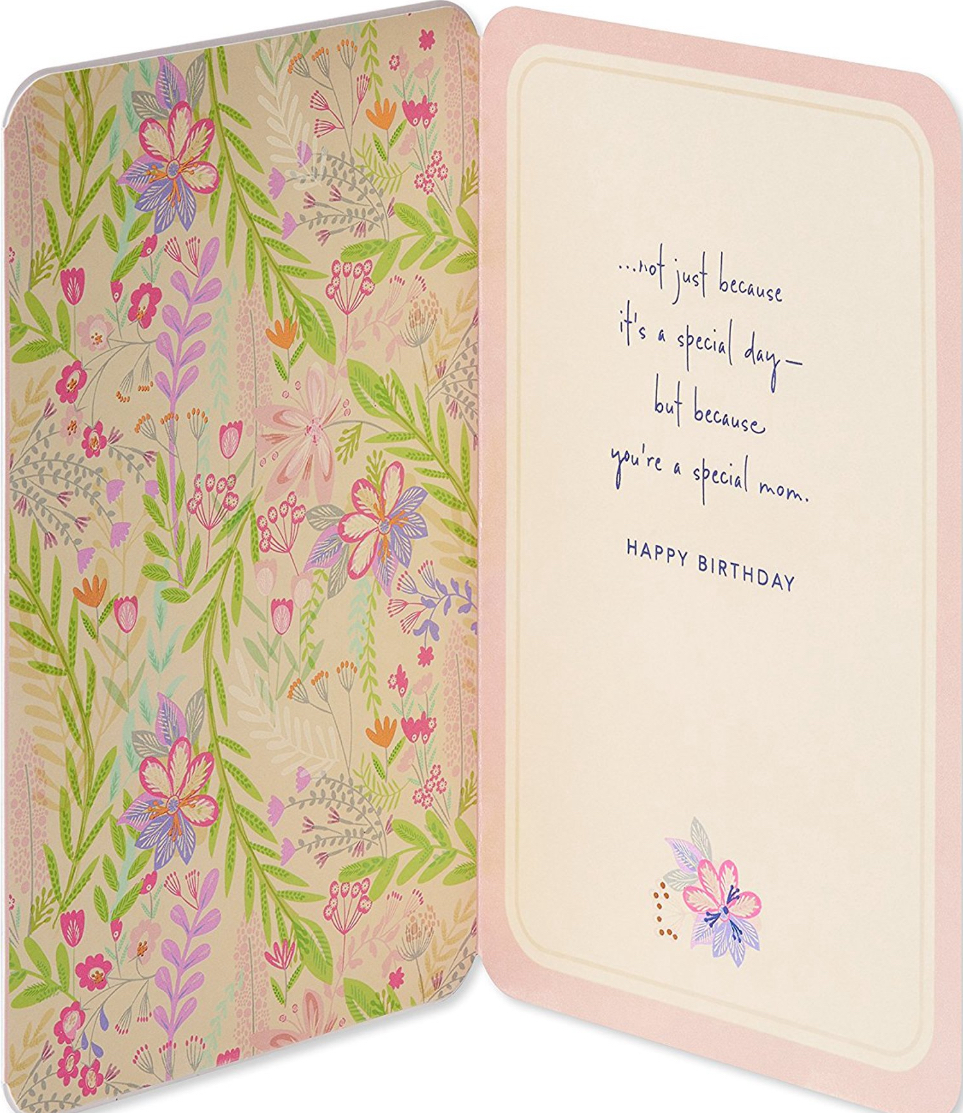 ...not just because
it's a special day—
but because
you're a special mom.
HAPPY BIRTHDAY